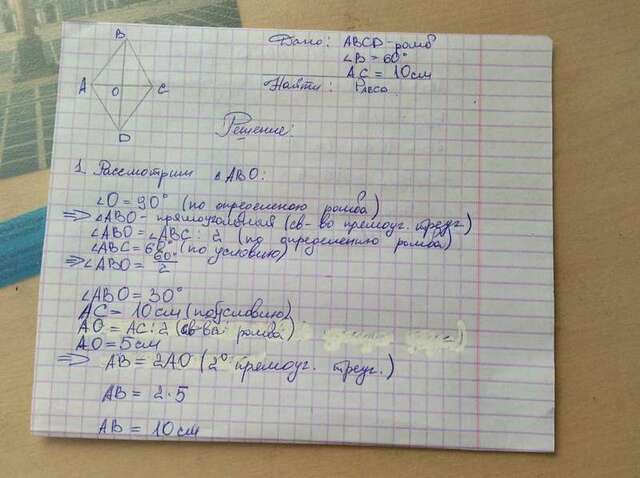 B
A O C
D
Дано: ABCD - ромб
∠B = 60°
AC = 10 см
Найти: PABCD
Решение:
1. Рассмотрим △ABO:
∠O = 90° (по определению ромба)
⇒ △ABO - прямоугольная (св-во прямоуг. треуг.)
∠ABO = ∠ABC : 2 (по определению ромба)
∠ABC = 60° (по условию)
⇒ ∠ABO = 60°/2
∠ABO = 30°
AC = 10 см (по условию)
AO = AC : 2 (св-ва ромба)
AO = 5 см
⇒ AB = 2AO (2° прямоуг. треуг.)
AB = 2 · 5
AB = 10 см